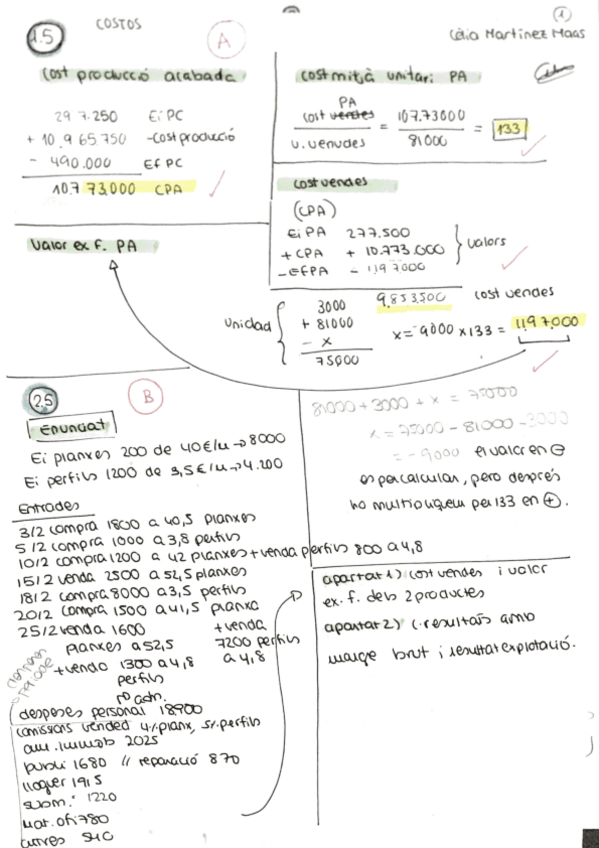 1
COSTOS
Cèlia Martínez Maas
1.5
A
cost producció acabada
297.250 Ei PC
+ 10.965.750 -cost producció
- 490.000 Ef PC
10.773.000 CPA
cost mitjà unitari PA
PA
cost vendes = 10.773.000 = 133
u. venudes 81000
cost vendes
(CPA)
Ei PA 277.500
+ CPA + 10.773.000
- EFPA - 1.197.000
valors
9.853.500 cost vendes
Valor ex f. PA
Unidad
3000
+ 81000
- x
75000
x = -9000 x 133 = 1.197.000
81000 + 3000 + x = 75000
x = 75000 - 81000 - 3000
= - 9000 el valor en ⊖
es per calcular, però després
ho multipliquem per 133 en ⊕.
2.5
B
Enunciat
Ei planxes 200 de 40€/u → 8000
Ei perfils 1200 de 3,5€/u → 4.200
Entrades
3/2 compra 1800 a 40,5 planxes
5/2 compra 1000 a 3,8 perfils
10/2 compra 1200 a 42 planxes + venda perfils 800 a 4,8
15/2 venda 2500 a 52,5 planxes
18/2 compra 8000 a 3,5 perfils
20/2 compra 1500 a 41,5 planxa
25/2 venda 1600 + venda
planxes a 52,5 7200 perfils
+ venda 1300 a 4,8 a 4,8
perfils
adm.
despeses personal 18900
comissions vended 4% planx, 5% perfils
am. immob 2025
publi 1680 // reparació 870
lloguer 1915
subm. 1220
mat. ofi 780
altres 540
apartat 1) cost vendes i valor
ex. f. dels 2 productes
apartat 2) C. resultats amb
marge brut i resultat explotació.